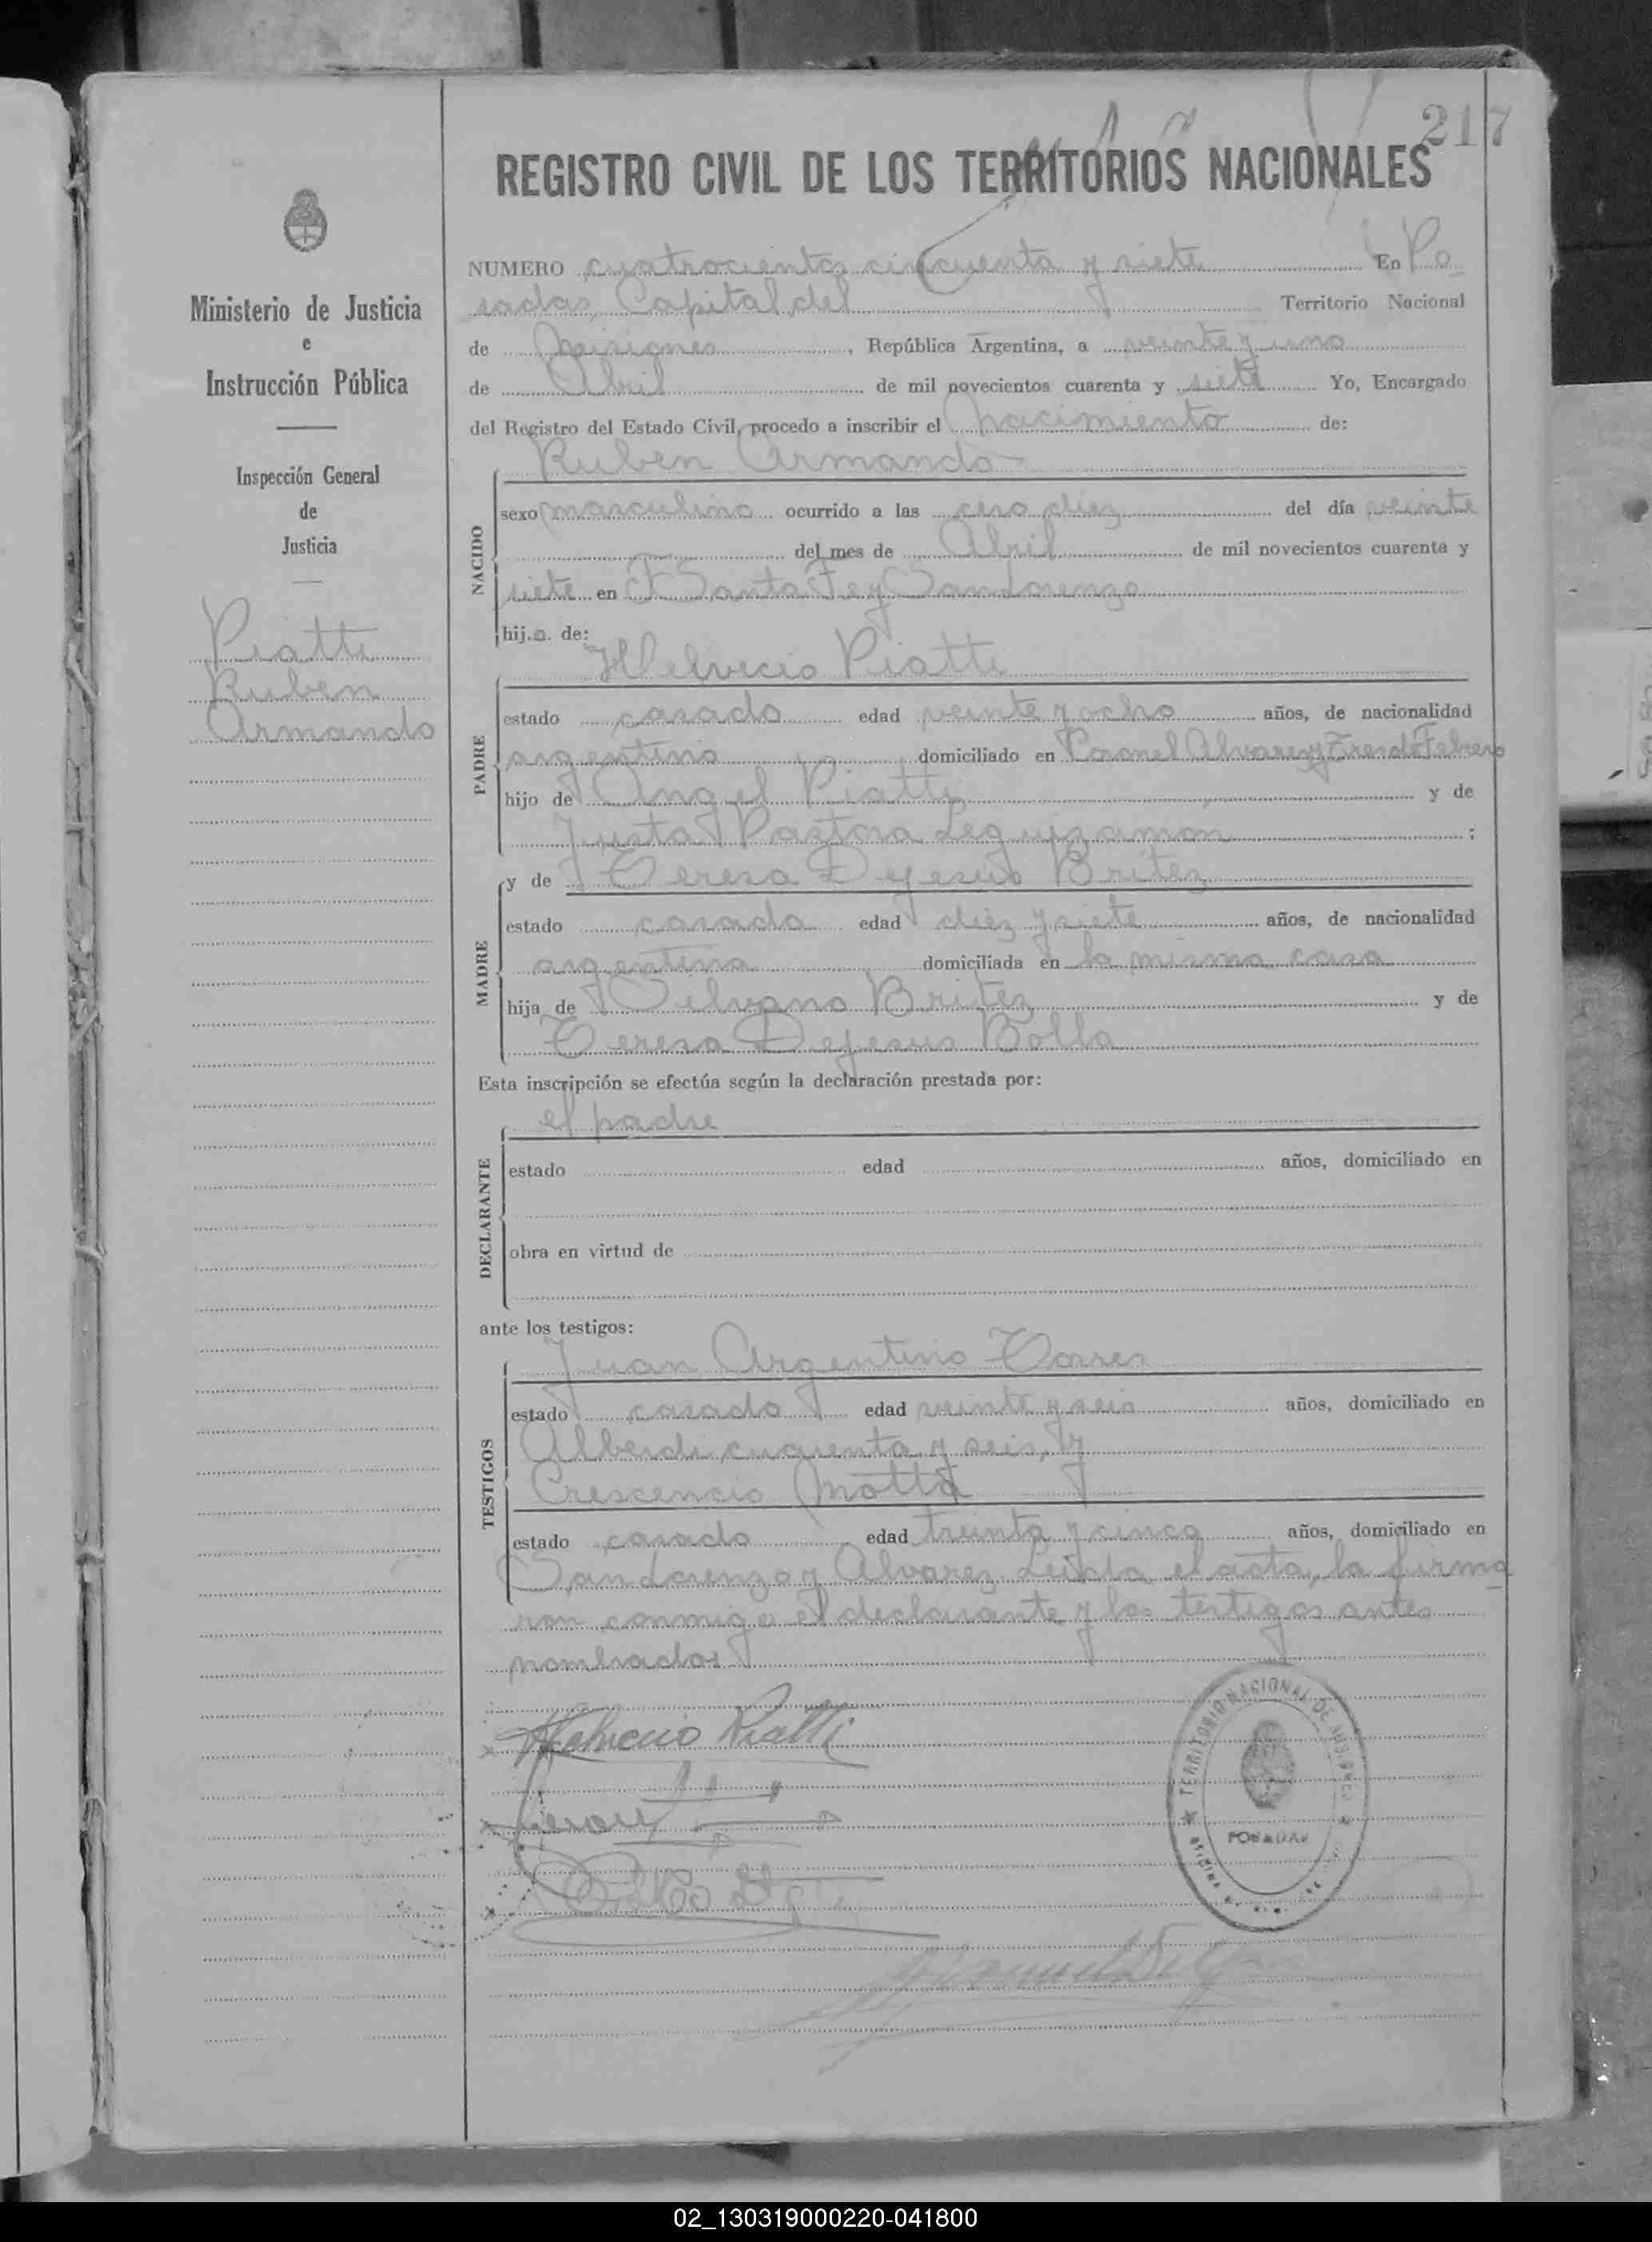 217
REGISTRO CIVIL DE LOS TERRITORIOS NACIONALES
Ministerio de Justicia
e
Instrucción Pública
Inspección General
de
Justicia
Piatti
Ruben
Armando
NUMERO cuatrocientos cincuenta y siete En Po
sadas, Capital del Territorio Nacional
de Misiones, República Argentina, a veinte y uno
de Abril de mil novecientos cuarenta y siete Yo, Encargado
del Registro del Estado Civil, procedo a inscribir el nacimiento de:
Ruben Armando
NACIDO
sexo masculino ocurrido a las cero diez del día veinte
del mes de Abril de mil novecientos cuarenta y
siete en Santa Fe y San Lorenzo
hij.o. de:
Helvecio Piatti
PADRE
estado casado edad veinte y ocho años, de nacionalidad
argentino domiciliado en Coronel Alvarez y Tres de Febrero
hijo de Angel Piatti y de
Justa Pastora Leguizamon ;
MADRE
y de Teresa Dejesus Britez
estado casada edad diez y siete años, de nacionalidad
argentina domiciliada en la misma casa
hija de Silvano Britez y de
Teresa Dejesus Bolla
Esta inscripción se efectúa según la declaración prestada por:
el padre
DECLARANTE
estado edad años, domiciliado en
obra en virtud de
ante los testigos:
Juan Argentino Torres
TESTIGOS
estado casado edad veinte y seis años, domiciliado en
Alberdi cuarenta y seis, y
Crescencio Motta
estado casado edad treinta y cinco años, domiciliado en
San Lorenzo y Alvarez Leida el acta, la firma
ron conmigo el declarante y los testigos antes
nombrados
Helvecio Piatti
TERRITORIO NACIONAL DE MISIONES
POSADAS
02_130319000220-041800